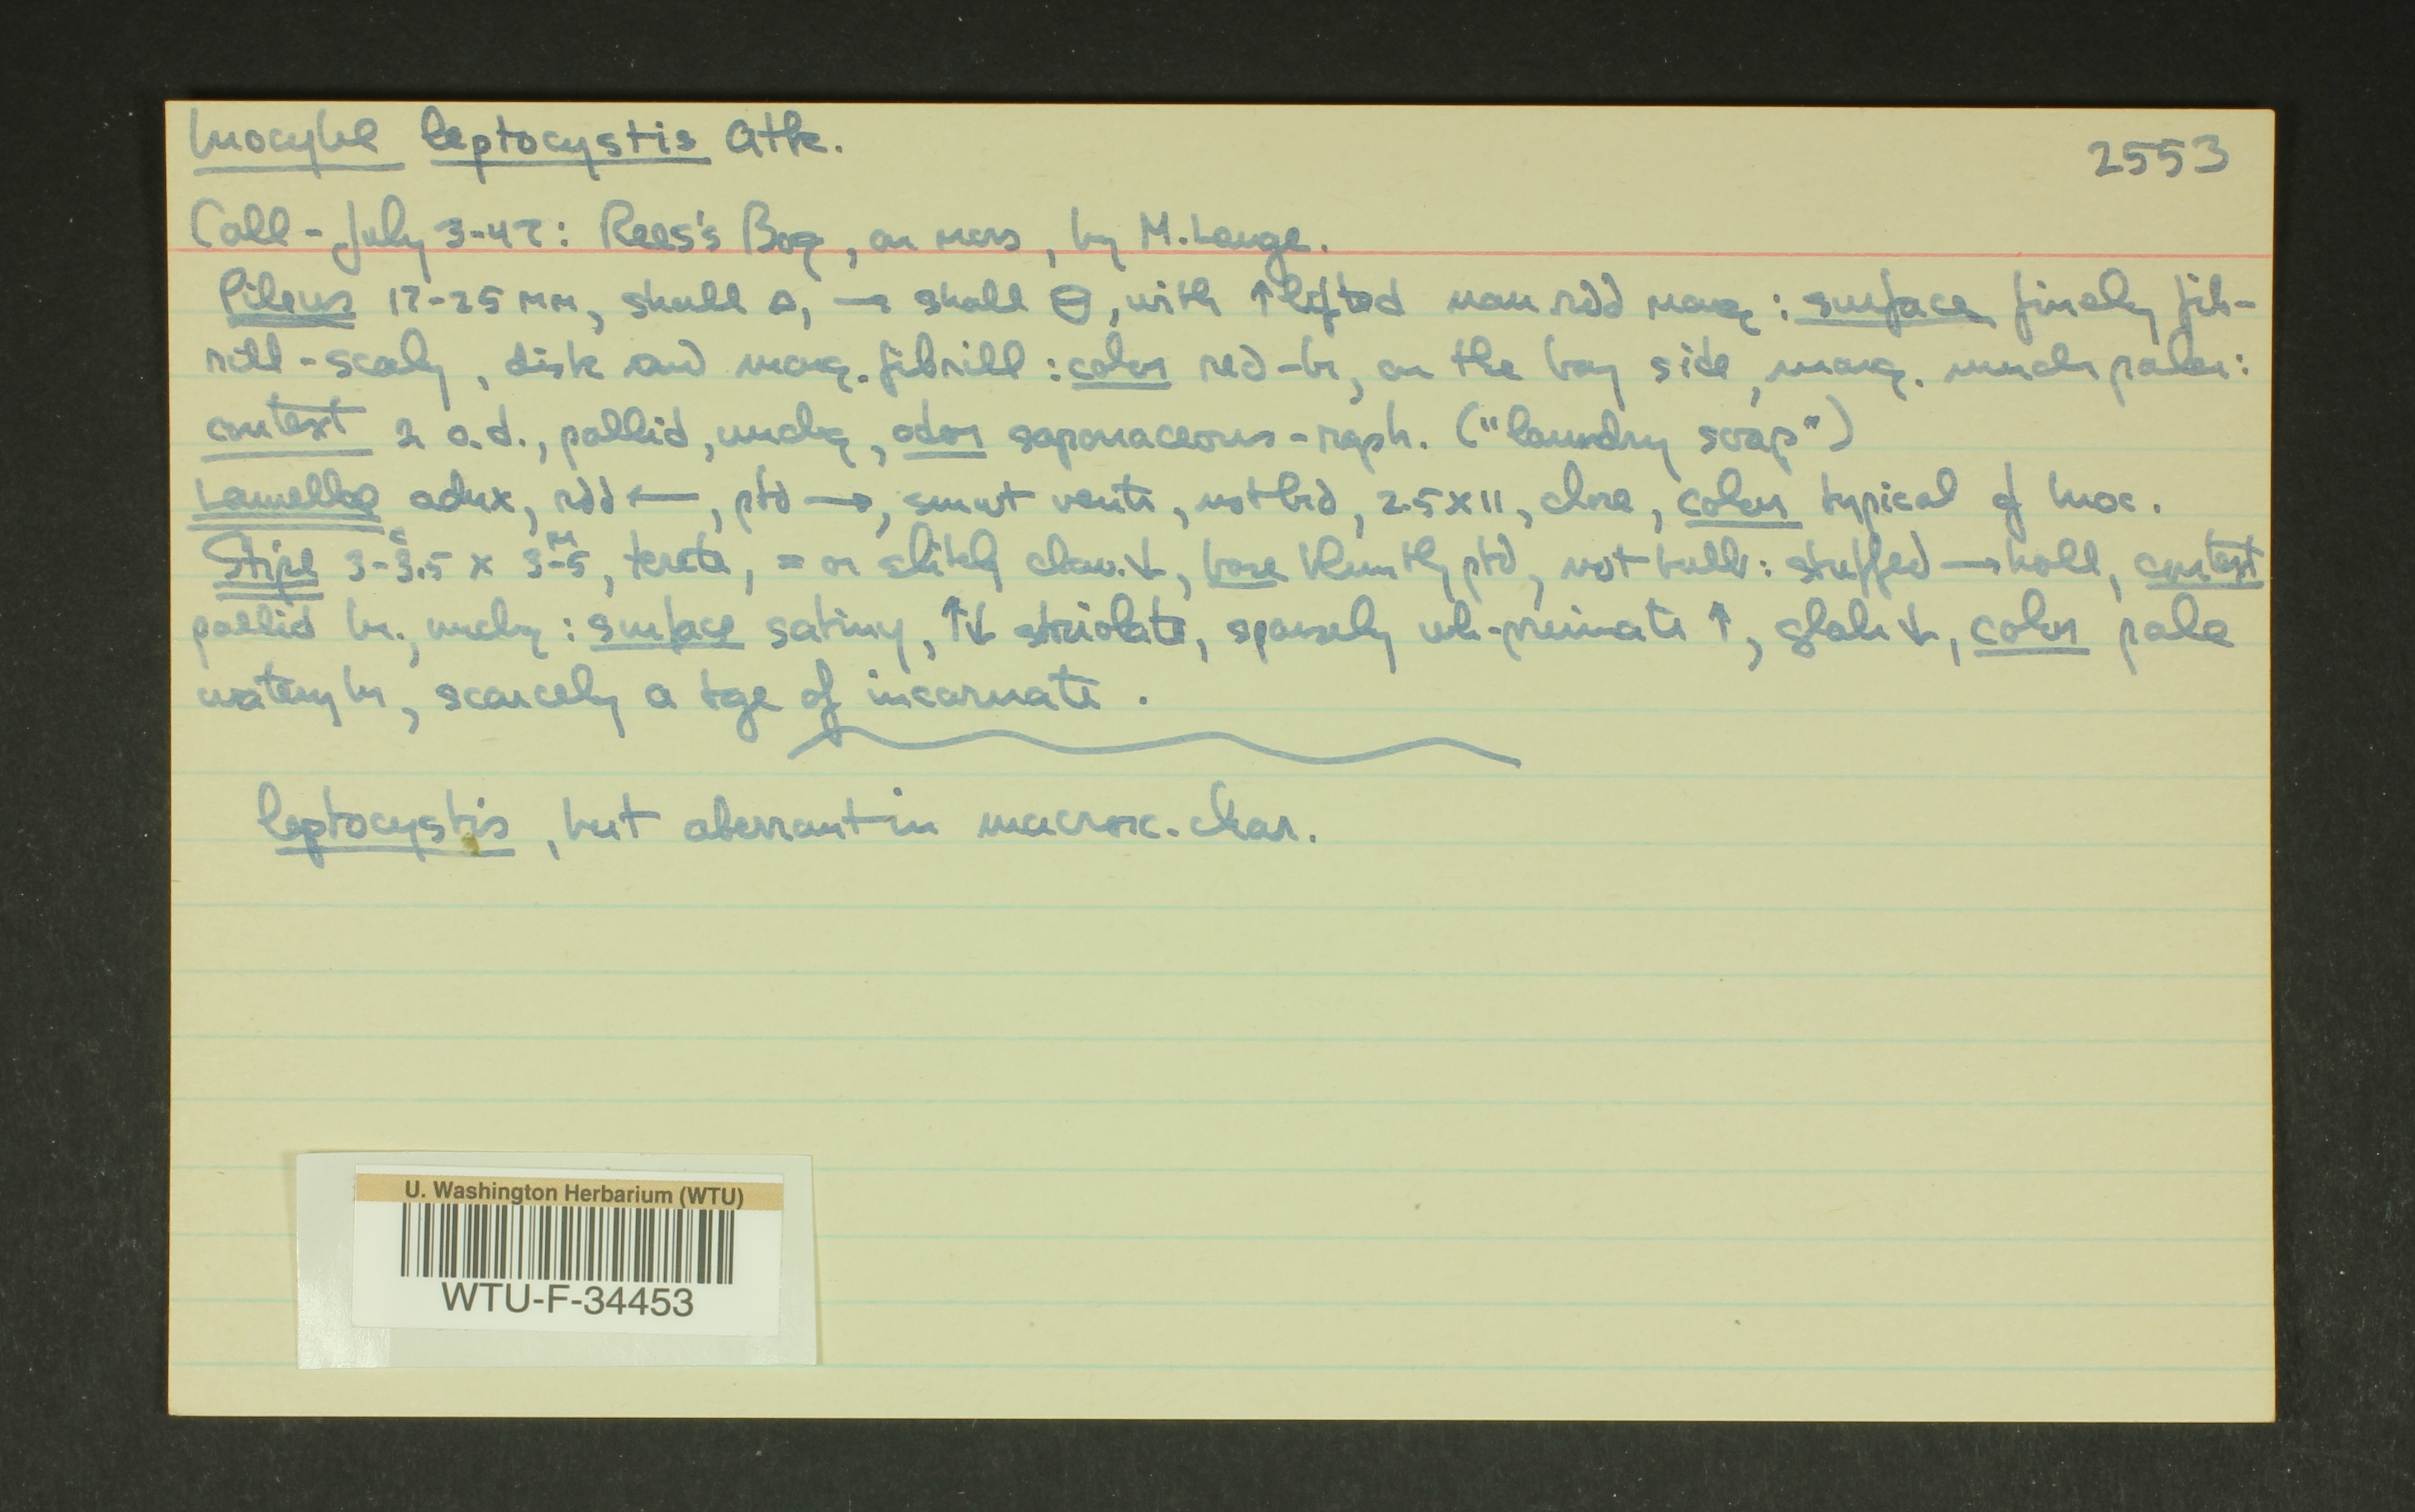 Inocybe leptocystis Atk. 2553
Coll - July 3-47: Rees's Bog, on moss, by M. Lange.
Pileus 17-25 MM, shall △, → shall ⊖, with ↑ lifted narr rdd marg: surface finely fib-
rill-scaly, disk and marg. fibrill: color red-br, on the bay side, marg. much paler:
context 2 a.d., pallid, unchg, odor saponaceous-raph. ("laundry soap")
Lamellae adnx, rdd ←, ptd →, smwt ventr, not brd, 2.5 x 11, close, color typical of Inoc.
Stipe 3-3.5 c x 3-5 m, terete, = or slitely clav. ↓, base bluntly ptd, not bulb: stuffed → holl, context
pallid br., unchg: surface satiny, ↑↓ striolate, sparsely wh-pruinate ↑, glab ↓, color pale
watery br, scarcely a tge of incarnate.
leptocystis, but aberrant in macrosc. char.
U. Washington Herbarium (WTU)
WTU-F-34453